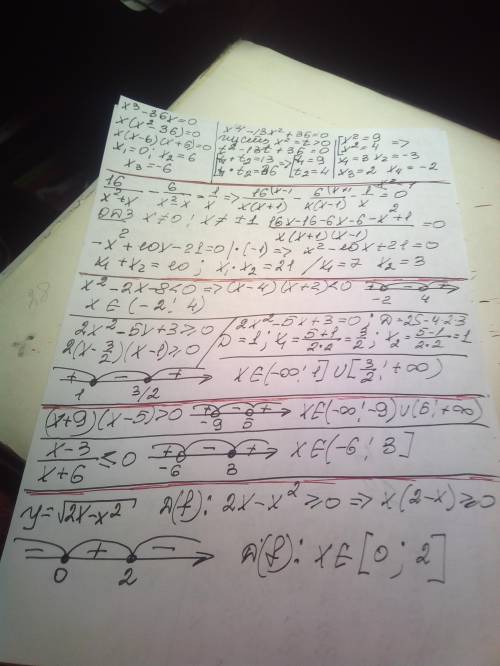 x³-36x=0
x(x²-36)=0
x(x-6)(x+6)=0
x₁=0; x₂=6
x₃=-6
x⁴-13x²+36=0
пусть x²=t>0
t²-13t+36=0
t₁+t₂=13 => [t₁=9
t₁·t₂=36 [t₂=4
[x²=9
[x²=4 =>
x₁=3 x₂=-3
x₃=2 x₄=-2
16/(x²+x) - 6/(x²-x) = 1/x => 16(x-1)/(x(x+1)) - 6(x+1)/(x(x-1)) =0
ОДЗ x≠0; x≠±1 (16x-16-6x-6-x²+1)/(x(x+1)(x-1)) =0
-x²+10x-21=0 |·(-1) => x²-10x+21=0
x₁+x₂=10; x₁·x₂=21 / x₁=7 x₂=3
x²-2x-8<0 => (x-4)(x+2)<0 + - +
-2 4
x∈(-2; 4)
2x²-5x+3≥0
2(x-3/2)(x-1)≥0
+ - +
1 3/2
2x²-5x+3=0; D=25-4·2·3
D=1; x₁=(5+1)/(2·2)=3/2; x₂=(5-1)/(2·2)=1
x∈(-∞; 1]∪[3/2; +∞)
(x+9)(x-5)>0 + - + x∈(-∞;-9)∪(5; +∞)
-9 5
(x-3)/(x+6) ≤0 + - + x∈(-6; 3]
-6 3
y=√(2x-x²) D(f): 2x-x²≥0 => x(2-x)≥0
- + -
0 2
D(f): x∈[0; 2]